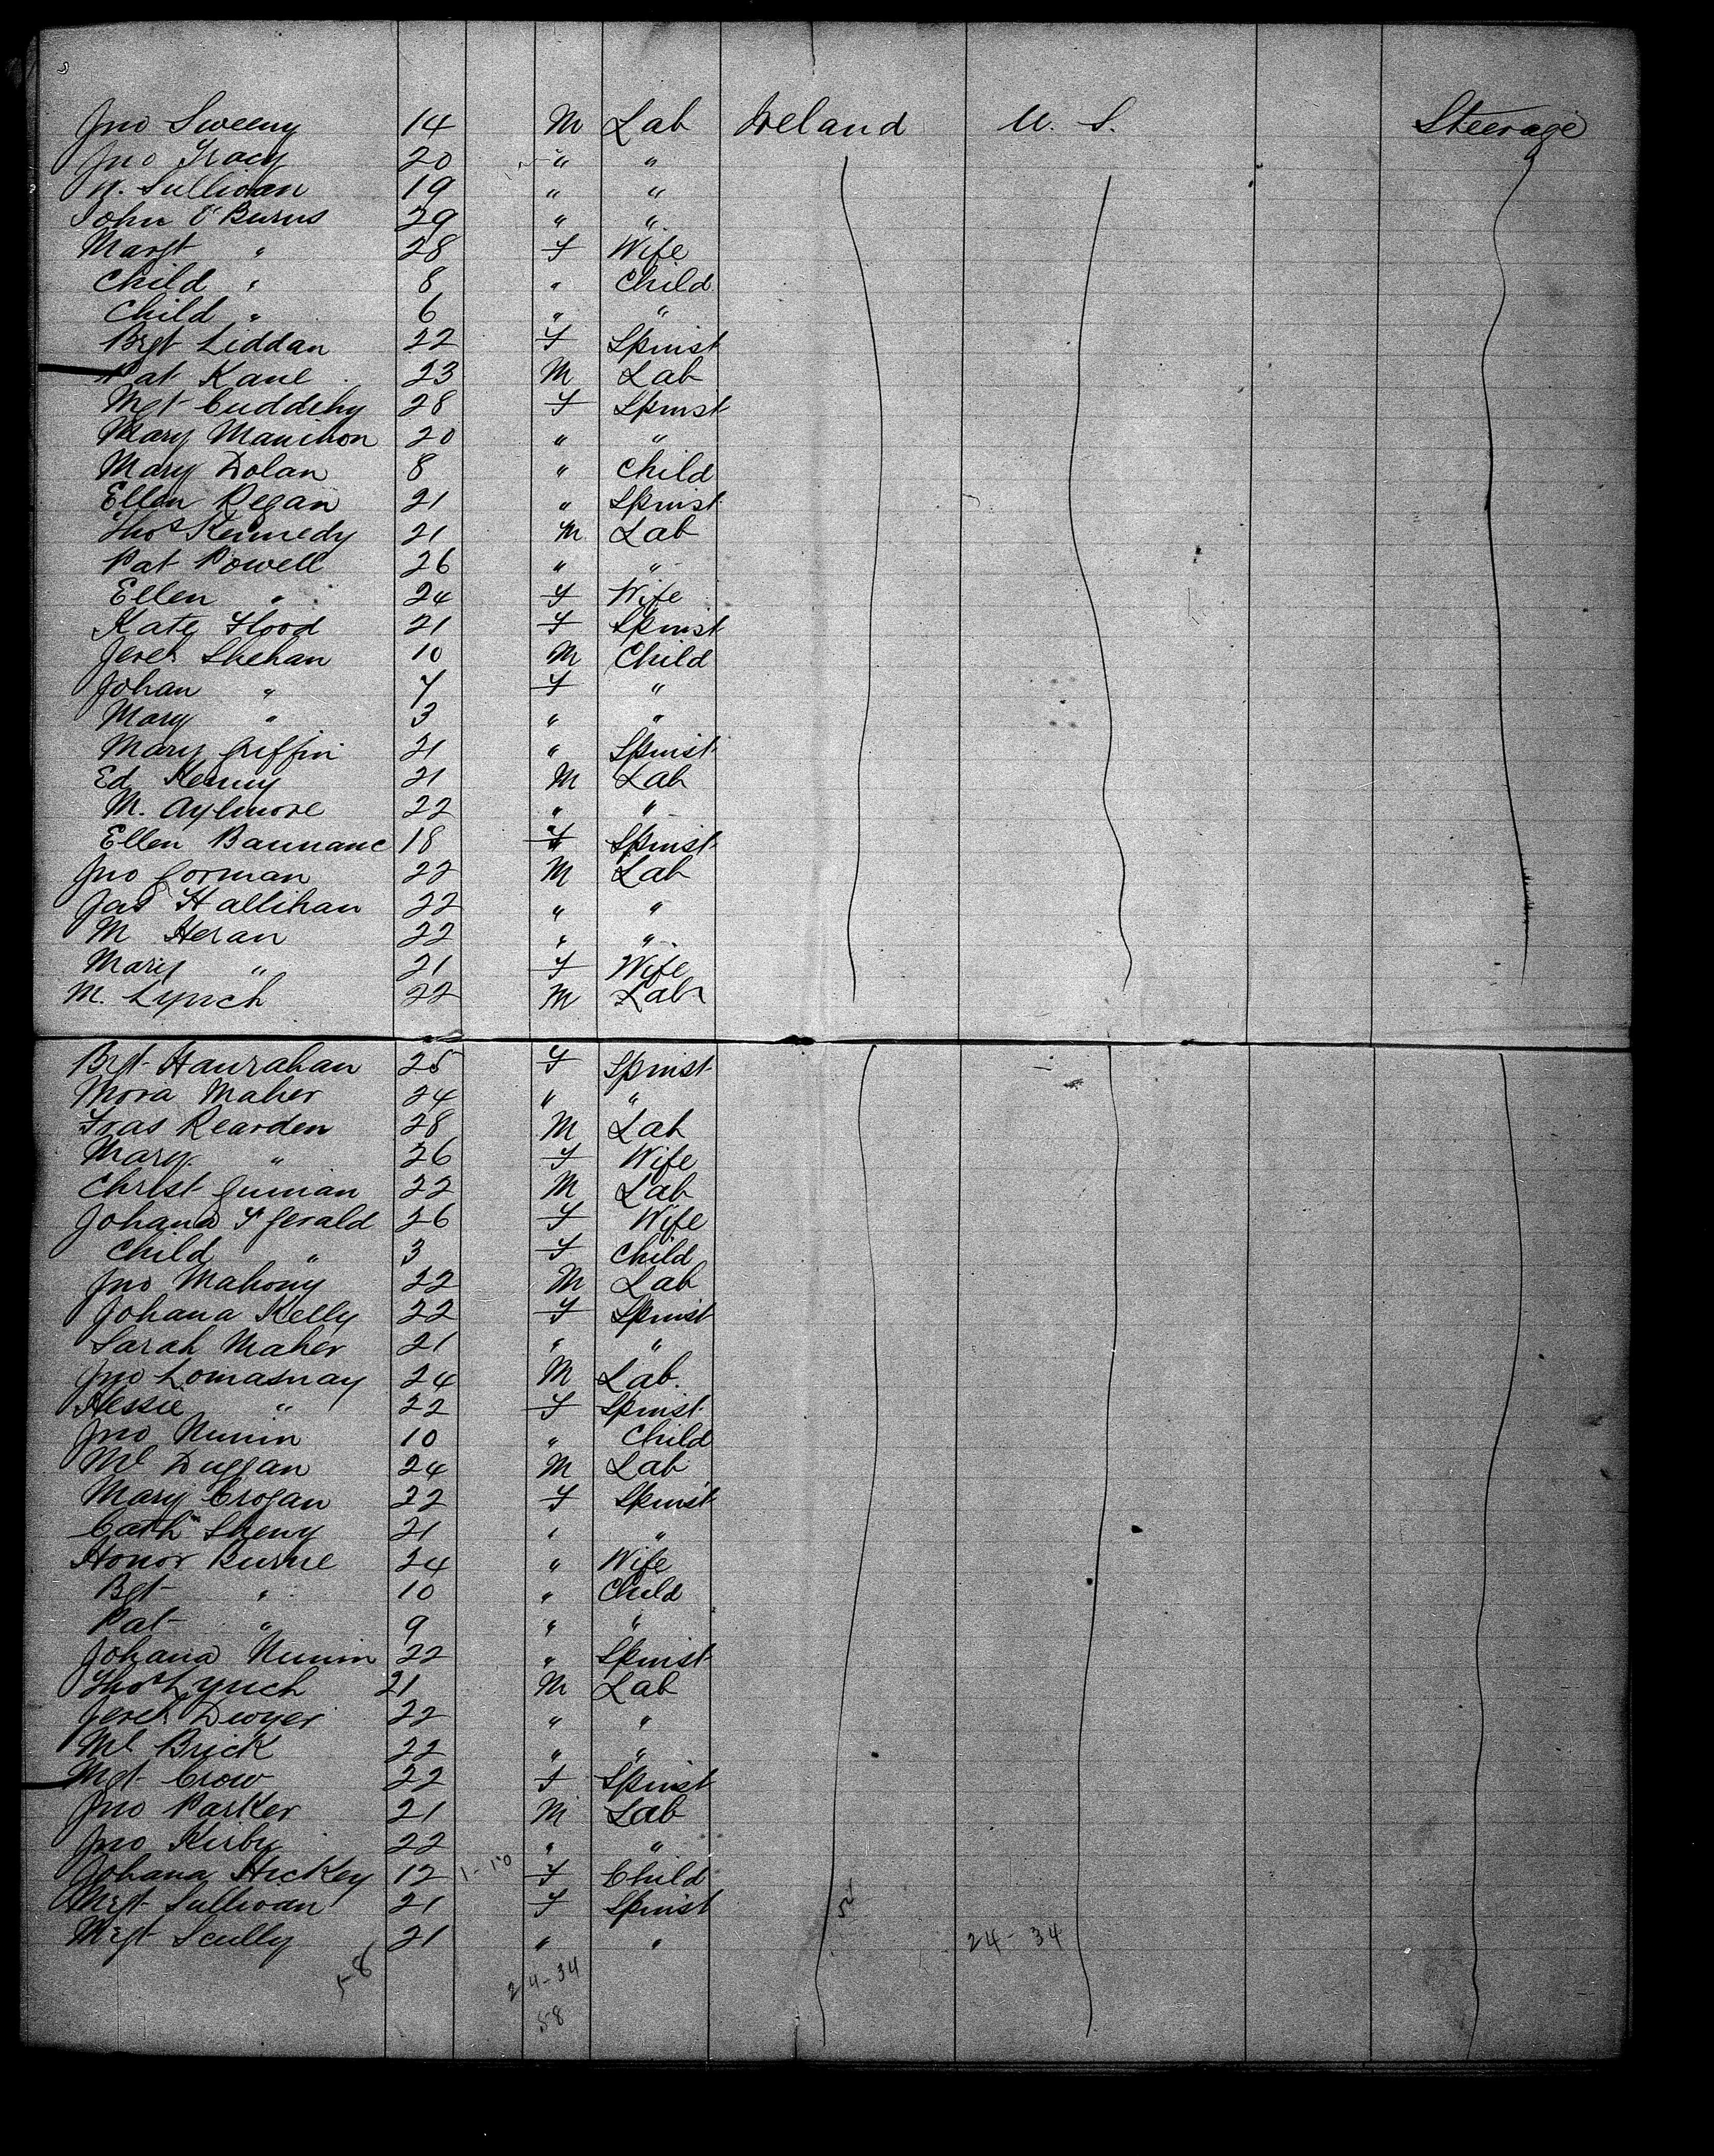 Jno Sweeny 14 M Lab Ireland U. S. Steerage
Jno Tracy 20 " "
N. Sullivan 19 " "
John O'Burns 29 " "
Margt " 28 F Wife
Child " 8 " Child
Child " 6 " "
Brgt Liddan 22 F Spinst
Pat Kane 23 M Lab
Mgt Cuddihy 28 F Spinst
Mary Manihon 20 " "
Mary Dolan 8 " Child
Ellen Regan 21 " Spinst
Thos Kennedy 21 M Lab
Pat Powell 26 " "
Ellen " 24 F Wife
Kate Flood 21 F Spinst
Jereh Shehan 10 M Child
Johan " 7 F "
Mary " 3 " "
Mary Griffin 21 " Spinst
Ed Kenny 21 M Lab
M. Aylmore 22 " "
Ellen Bannane 18 F Spinst
Jno Gorman 22 M Lab
Jas Hallihan 22 " "
M Heran 22 " "
Mary " 21 F Wife
M. Lynch 22 M Lab
Brgt Hanrahan 25 F Spinst
Mora Maher 24 " "
Fras Rearden 28 M Lab
Mary " 26 F Wife
Christ Guinan 22 M Lab
Johana F Gerald 26 F Wife
Child " 3 F Child
Jno Mahony 22 M Lab
Johana Kelly 22 F Spinst
Sarah Maher 21 " "
Jno Lomasnay 24 M Lab.
Hessie " 22 F Spinst
Jno Nunin 10 " Child
Ml Duggan 24 M Lab
Mary Crogan 22 F Spinst
Cath Sheny 21 " "
Honor Burne 24 " Wife
Bgt " 10 " Child
Pat " 9 " "
Johana Nunin 22 " Spinst
Thos Lynch 21 M Lab
Jereh Dwyer 22 " "
Ml Brick 22 " "
Mgt Crow 22 F Spinst
Jno Parker 21 M Lab
Jno Kirby 22 " "
Johana Hickey 12 1-10 F Child
Mrgt Sullivan 21 F Spinst
Mrgt Scully 21 " " 24-34
58 24-34
58